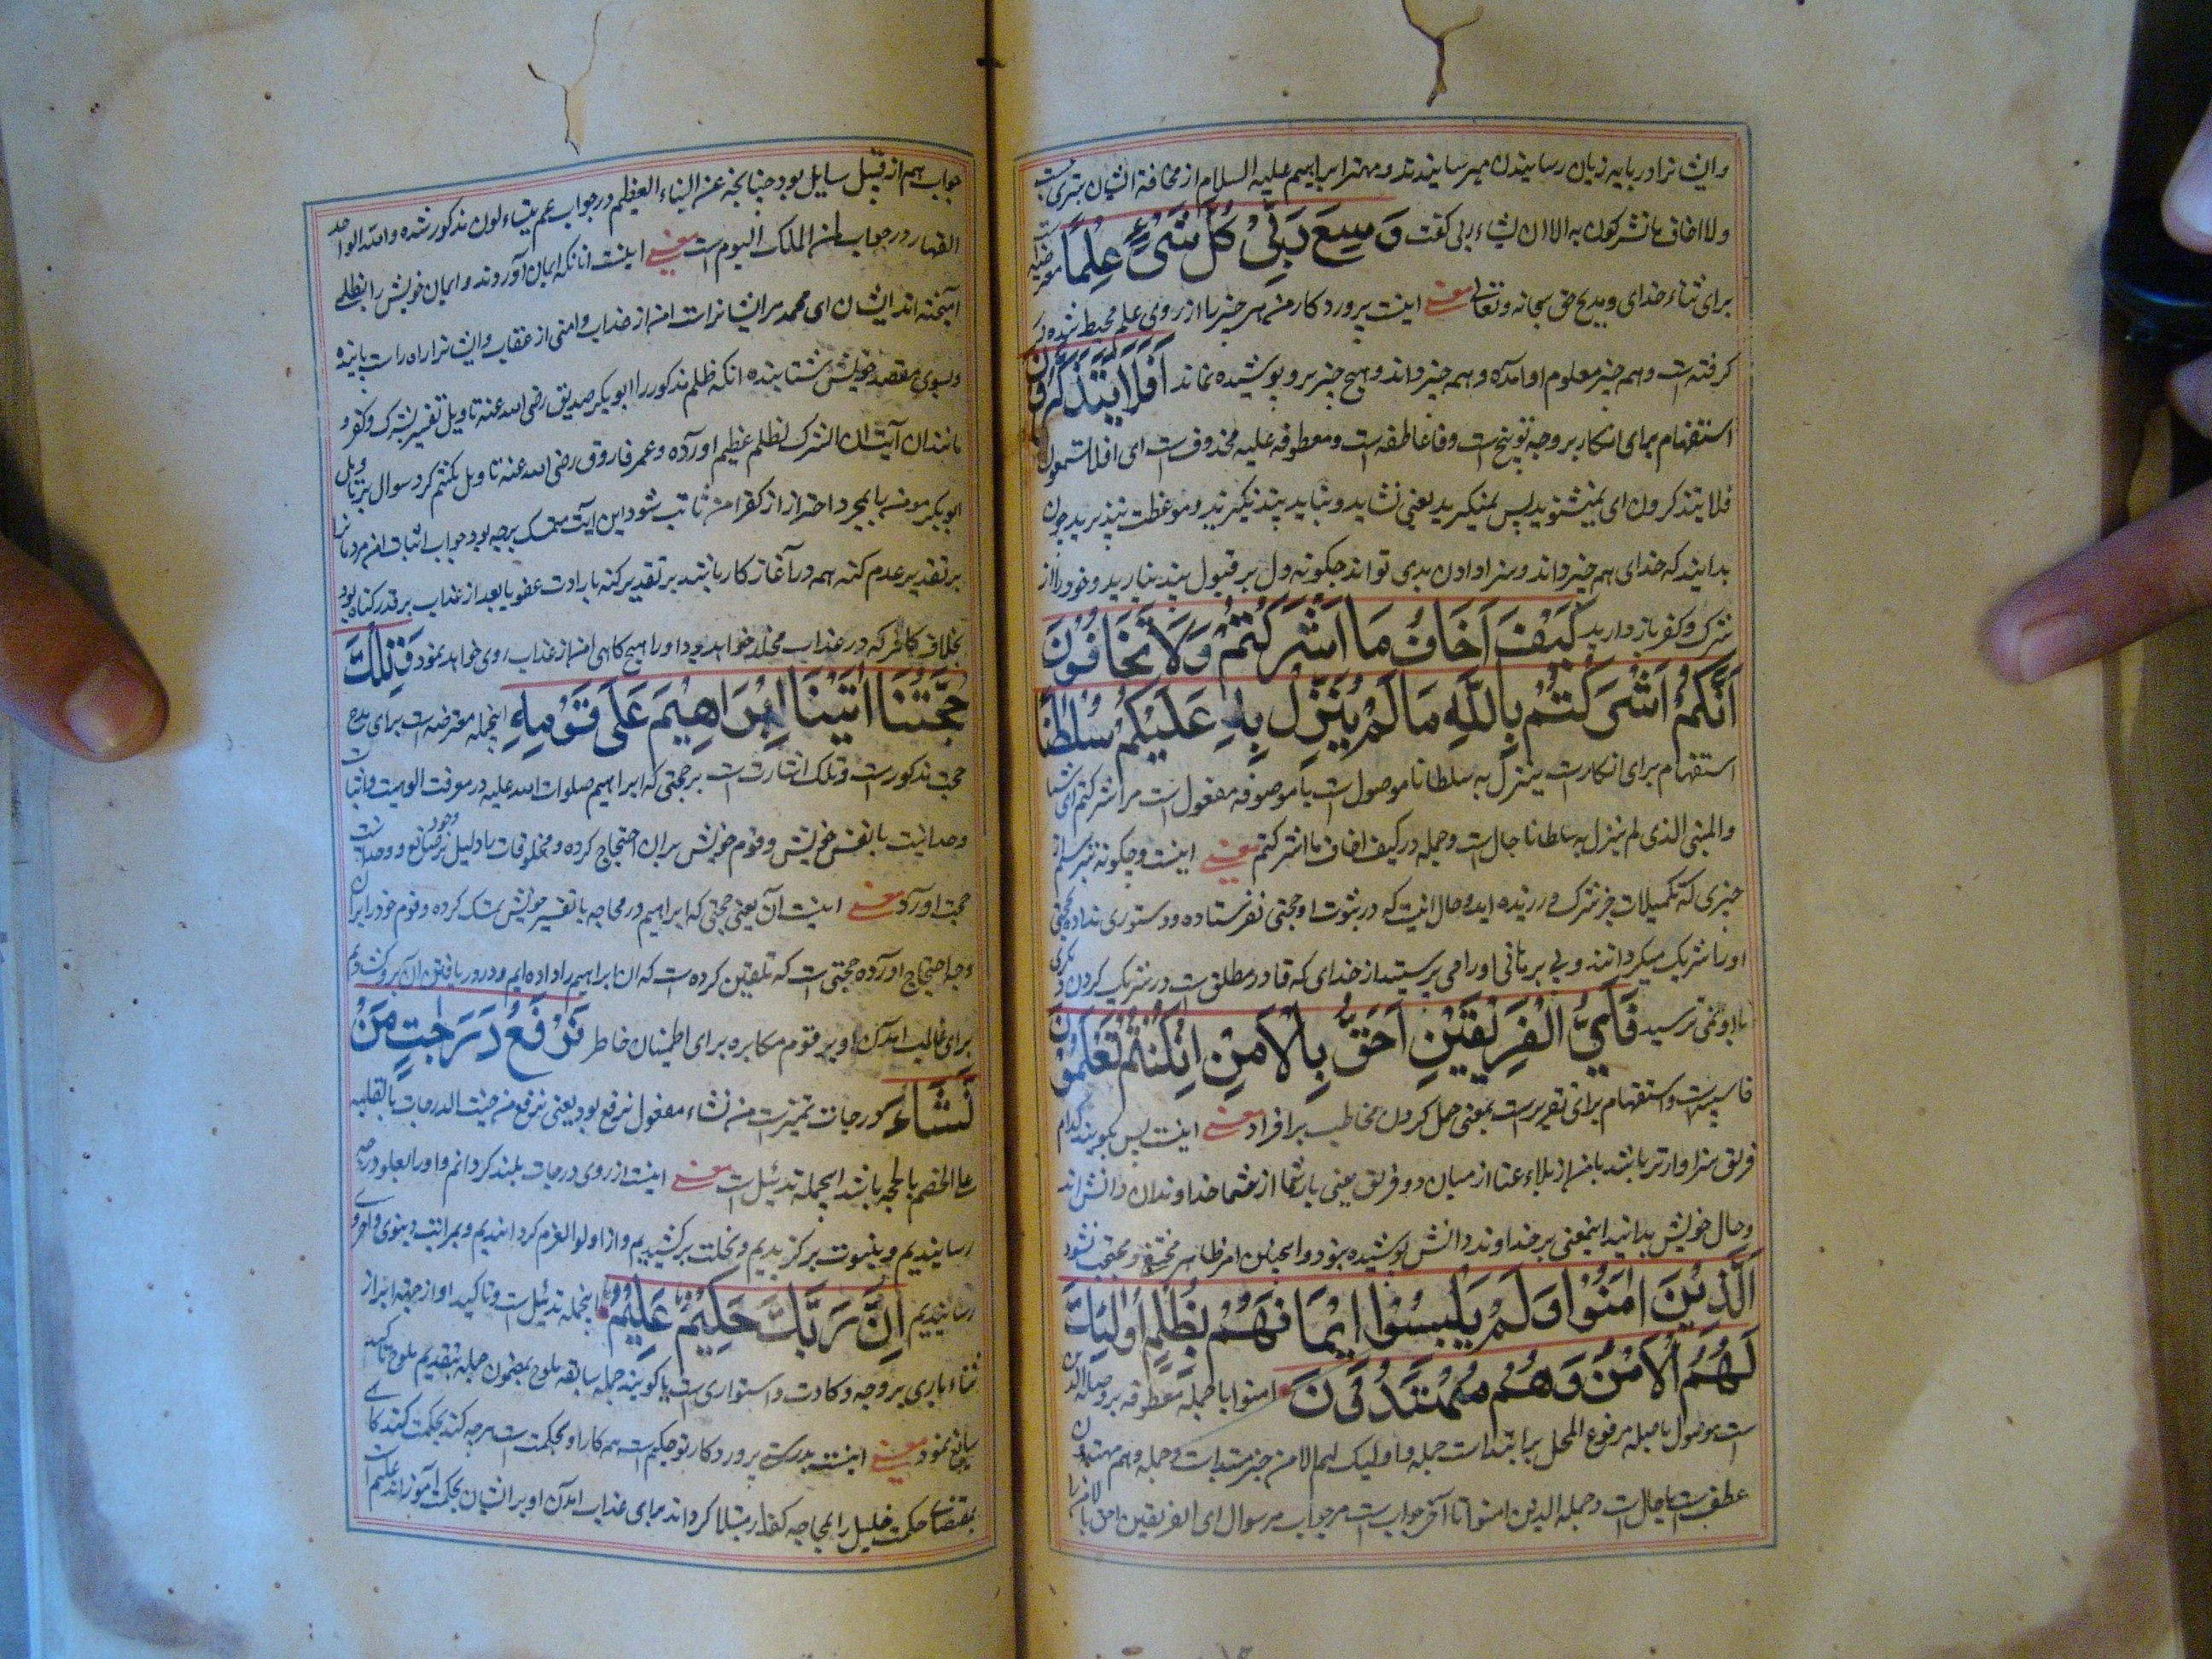 وایشانرا در بابیه زبان رسانیدن میرسانیدند و مهتر ابراهیم علیه السلام از مخافة ایشان تبری
ولا اخاف ما تشرکون به الا ان یشاء ربی گفت وَسِعَ رَبِّیْ كُلَّ شَیْءٍ عِلْماً
برای ثناء خدای و مدیح حق سبحانه وتعالی معنی اینست پروردگار من هر چیز را از روی علم محیط شده
گرفته است و همه چیز معلوم او آمده و همه چیز داند و هیچ چیز برو پوشیده نماند اَفَلَا تَتَذَكَّرُوْنَ
استفهام برای انکار بر وجه توبیخ است و فا عاطفه است و معطوفه علیه محذوف است ای افلا تسمعون
فلا یتذکرون ای نمیشنوید پس نمیگیرید یعنی نشاید و نباید پند نگیرید و موعظت نپذیرید چون
بدانید که خدای همه چیز داند و سزا دادن بدی تواند چگونه دل بر قبول پند نیارید و خود را از
شرک و کفر باز دارید كَیْفَ اَخَافُ مَا اَشْرَكْتُمْ وَلَا تَخَافُوْنَ
اَنَّكُمْ اَشْرَكْتُمْ بِاللّٰهِ مَا لَمْ یُنَزِّلْ بِهٖ عَلَیْكُمْ سُلْطٰنًا
استفهام برای انکار است ینزل به سلطانا موصول است یا موصوفه مفعول است مر اشرکتم ای شیئا
والمبنی الذی لم ینزل به سلطانا حال است و جمله در کیف اخاف ما اشرکتم معنی اینست و چگونه ترسم از
چیزی که ورزیده اید و حال اینست که در ثبوت او حجتی نفرستاده و دستوری نداده
او را شریک میگردانند و بی برهانی او را می پرستید از خدای که قادر مطلق است در شریک کردن
با او نمی ترسید فَاَیُّ الْفَرِیْقَیْنِ اَحَقُّ بِالْاَمْنِ اِنْ كُنْتُمْ تَعْلَمُوْنَ
فا سببیه است و استفهام برای تقریر است بمعنی حمل کردن مخاطب بر اقرار معنی اینست پس بگویند کدام
فریق سزاوارتر باشد بامن از بلاء عنا از میان دو فریق یعنی یا شما از شما خداوندان دانش اند
و حال خویش بدانید اینمعنی بر خداوند دانش پوشیده نبود و اینچنین امر ظاهر مختفی و محتجب نشود
اَلَّذِیْنَ اٰمَنُوْا وَلَمْ یَلْبِسُوْا اِیْمَانَهُمْ بِظُلْمٍ اُولٰئِكَ
لَهُمُ الْاَمْنُ وَهُمْ مُهْتَدُوْنَ امنوا با جمله معطوفه برو صله الذین
است موصول با صله مرفوع المحل بر ابتداست جمله و اولیک لهم الامن خبر مبتداست و جمله و هم مهتدون
عطف است یا حال است و جمله الذین امنوا تا آخر جواب است مر جواب مر سوال ای الفریقین احق بالامن را
جواب هم از قبل سایل بود چنانچه عن النباء العظیم در جواب عم یتساءلون مذکور شده و لله الواحد
القهار در جواب لمن الملک الیوم است معنی اینست انانکه ایمان آوردند و ایمان خویش را بظلمی
آمیخته اند ایشان ای محمد مر ایشانراست امن از عذاب و امنی از عقاب و ایشانرا راه راست یابنده
و بسوی مقصد خویش شتابنده انکه ظلم مذکور را ابوبکر صدیق رضی الله عنه تاویل تفسیر بشرک و کفر و
مانند ان آیت ان الشرک لظلم عظیم آورده و عمر فاروق رضی الله عنه تاویل بکتم کرد سوال بر تاویل
ابوبکر مومن را بمجرد احتراز از کفر امن ثابت شود این آیت متمسک مرجیه بود جواب اثبات امن مر
بر تقدیر عدم گنه هم در آغاز کار باشد بر تقدیر گنه بارادت عفو یا بعد از عذاب بر قدر گناه بود
بخلاف کافر که در عذاب مخلد خواهد بود او را هیچ گاهی امن از عذاب روی نخواهد نمود وَتِلْكَ
حُجَّتُنَا اٰتَیْنَا اِبْرَاهِیْمَ عَلٰی قَوْمِهٖ اینجمله معترضه است برای مدح
حجت مذکور است و تلک اشارت است بر حجتی که ابراهیم صلوات الله علیه در معرفت الوهیت و اثبات
وحدانیت با نفس خویش و قوم خویش بران احتجاج کرده و مخلوقات با دلیل بر وجود صانع و وحدانیت
حجت آورد معنی اینست آن یعنی حجتی که ابراهیم در محاجه با نفس خویش تمسک کرده و قوم خود را بران
وجه احتجاج آورده حجتی است که تلقین کرده است که ان ابراهیم را داده ایم و در دریافتن آن
برای غالب آمدن او بر قوم مکابره برای اطمینان خاطر نَرْفَعُ دَرَجٰتٍ مَنْ
نَشَاءُ درجات تمیز است من نشاء مفعول نرفع بود یعنی نرفع من حیث الدرجات بالغلبه
علی الخصم بالحجه باشد اینجمله تذئیل است معنی اینست از روی درجات بلند گردانم و او را بعلو درجه
رسانیدیم و بنبوت برگزیدیم و بخلت برکشیدیم و از اولوا العزم گردانیدیم و بمراتب دینوی و اخروی
رسانیدیم اِنَّ رَبَّكَ حَكِیْمٌ عَلِیْمٌ اینجمله تذئیل است و تاکید او از جهة ابراز
ثناء باری بر وجه وکادت و استواری است یا گویند جمله سابقه ملوح بمضمون جمله بتقدیم ملوح تاکید
سابق نمود معنی اینست بدرستی پروردگار تو حکیم است همه کار او بحکمت است هر چه کند بحکمت کند
بمقتضای حکمت خلیل را بمحاجه کفار مبتلا گرداند برای عذاب آمدن او بر ایشان بحکمت علیم است